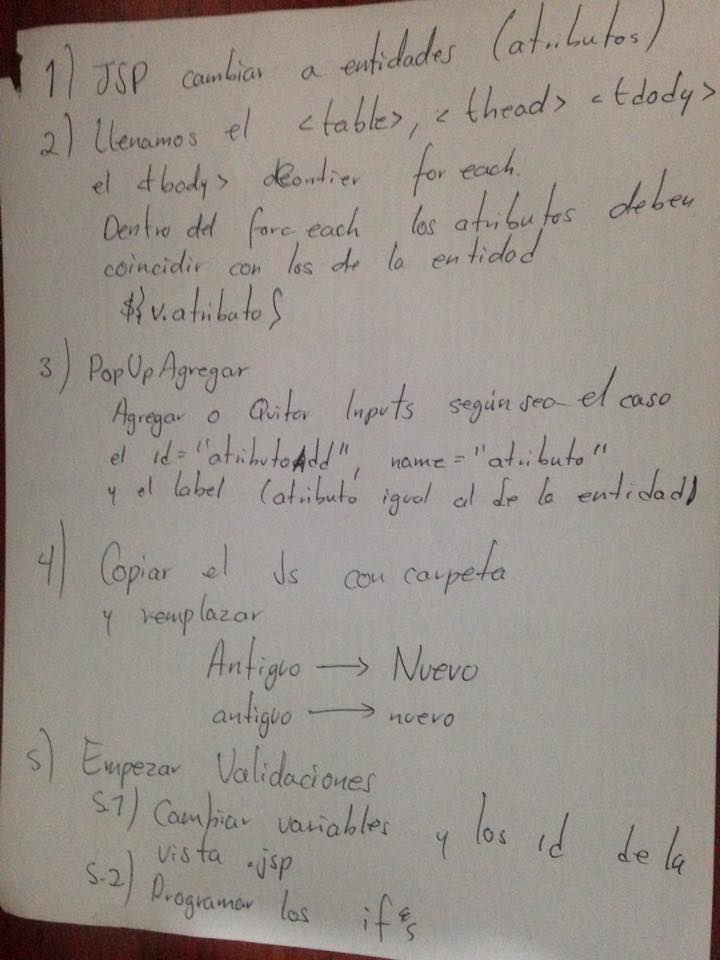 1) JSP cambiar a entidades (atributos)
2) Llenamos el <table>, <thead> <tdody>
el <tbody> for each.
Dentro del forc each los atributos deben
coincidir con los de la entidad
${v.atributo}
3) PopUpAgregar
Agregar o Quitar Inputs según sea el caso
el id="atributoAdd", name="atributo"
y el label (atributo igual al de la entidad)
4) Copiar el Js con carpeta
y remplazar
Antiguo → Nuevo
antiguo → nuevo
5) Empezar Validaciones
5.1) Cambiar variables y los id de la
vista .jsp
5.2) Programar los if's